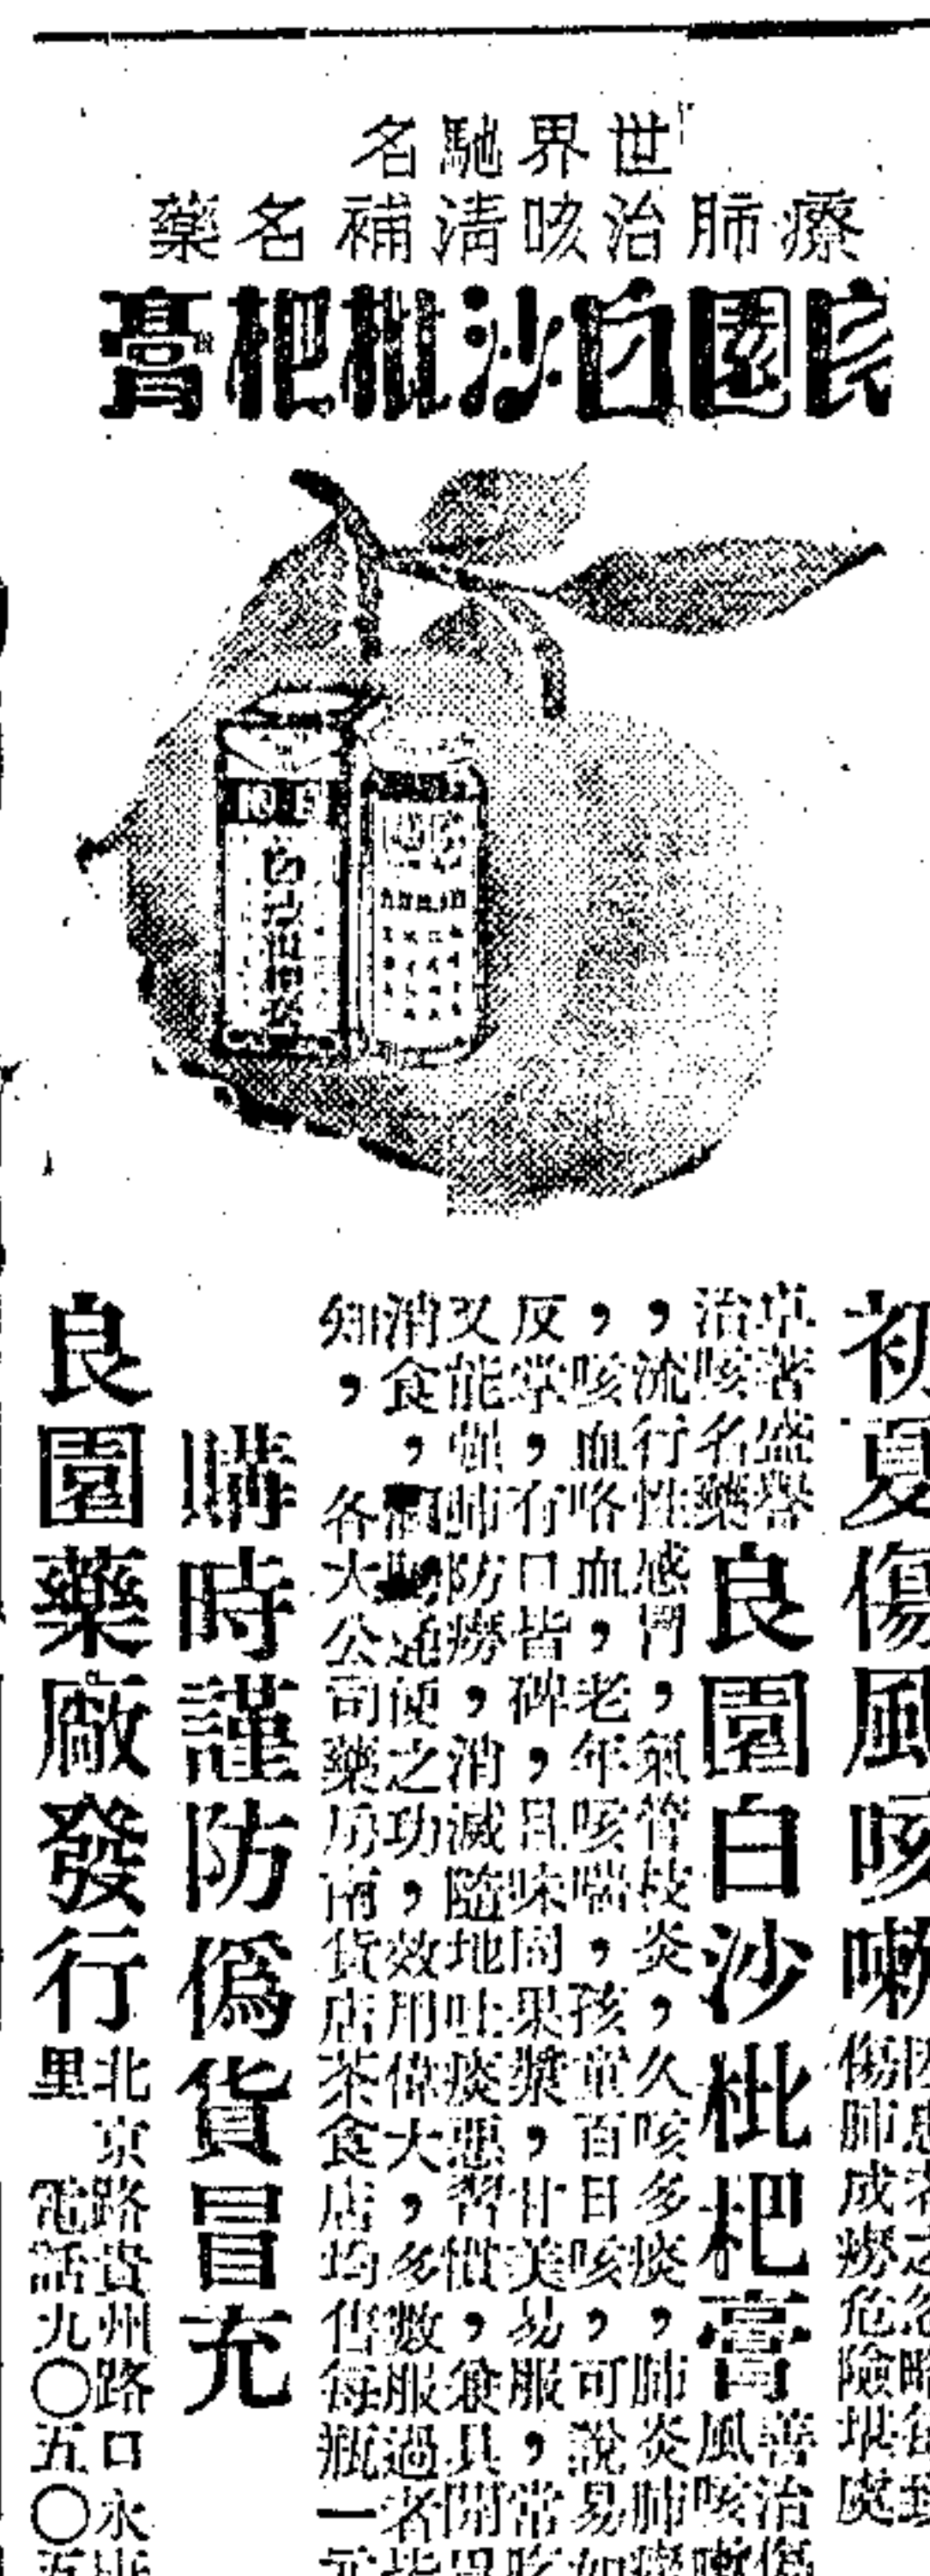 世界馳名
療肺治咳清補名藥
良園白沙枇杷膏
白沙枇杷膏
初夏傷風咳嗽
因患者之忽略每致
傷肺成癆危險堪虞
卓著盛譽
治咳名藥
良園白沙枇杷膏
善治傷
風咳嗽
，流行性感冒，氣管枝炎，久咳多痰，肺炎肺癆
，咳血咯血，老年咳喘，孩童百日咳，可說易如
反掌，有口皆碑，且味同果漿，甘美易服，常咳
又能強肺防癆，消滅隨地吐痰惡習慣，兼具開胃
消食，潤腸通便之功，效用偉大，多數服過者皆
知，各大公司藥房南貨店茶食店均售每瓶一元
購時謹防僞貨冒充
良園藥廠發行
北京路貴州路口永
里 電話九〇五〇五